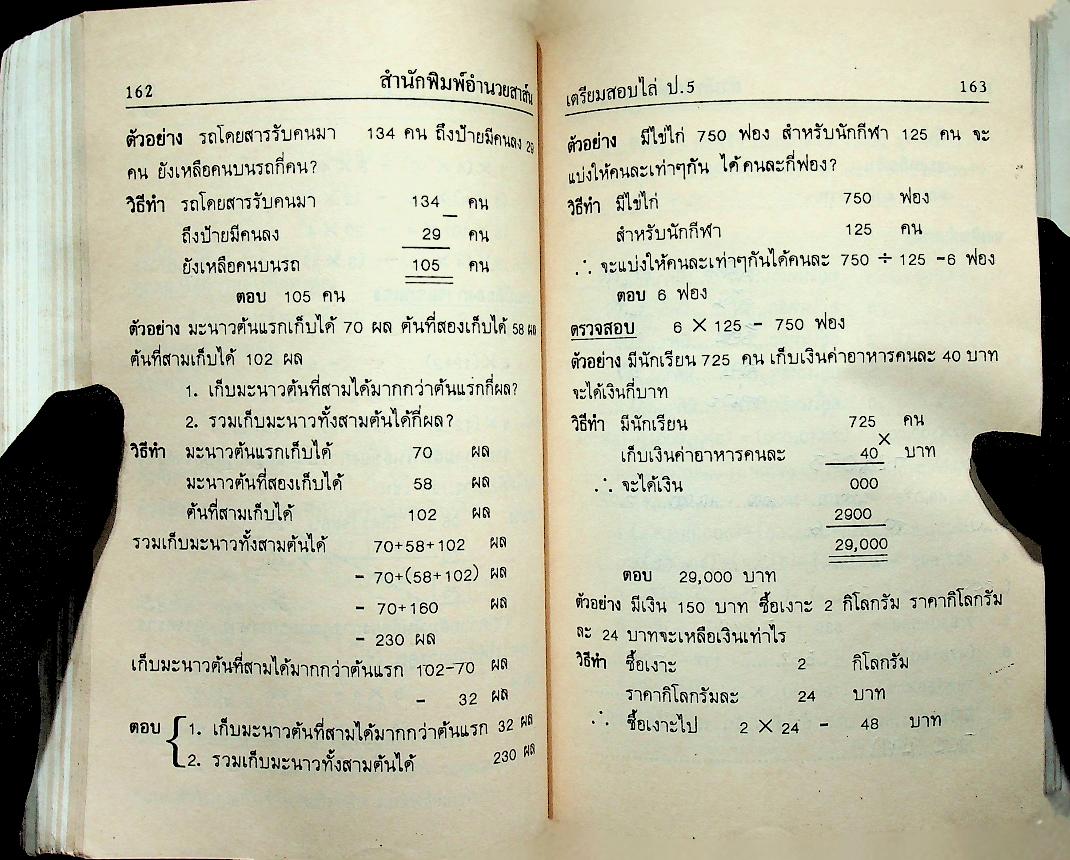 162 สำนักพิมพ์อำนวยสาส์น
ตัวอย่าง รถโดยสารรับคนมา 134 คน ถึงป้ายมีคนลง 29
คน ยังเหลือคนบนรถกี่คน?
วิธีทำ รถโดยสารรับคนมา 134 _ คน
ถึงป้ายมีคนลง 29 คน
ยังเหลือคนบนรถ 105 คน
ตอบ 105 คน
ตัวอย่าง มะนาวต้นแรกเก็บได้ 70 ผล ต้นที่สองเก็บได้ 58 ผล
ต้นที่สามเก็บได้ 102 ผล
1. เก็บมะนาวต้นที่สามได้มากกว่าต้นแรกกี่ผล?
2. รวมเก็บมะนาวทั้งสามต้นได้กี่ผล?
วิธีทำ มะนาวต้นแรกเก็บได้ 70 ผล
มะนาวต้นที่สองเก็บได้ 58 ผล
ต้นที่สามเก็บได้ 102 ผล
รวมเก็บมะนาวทั้งสามต้นได้ 70+58+102 ผล
- 70+(58+102) ผล
- 70+160 ผล
- 230 ผล
เก็บมะนาวต้นที่สามได้มากกว่าต้นแรก 102-70 ผล
- 32 ผล
ตอบ { 1. เก็บมะนาวต้นที่สามได้มากกว่าต้นแรก 32 ผล
2. รวมเก็บมะนาวทั้งสามต้นได้ 230 ผล
เตรียมสอบไล่ ป.5 163
ตัวอย่าง มีไข่ไก่ 750 ฟอง สำหรับนักกีฬา 125 คน จะ
แบ่งให้คนละเท่าๆกัน ได้คนละกี่ฟอง?
วิธีทำ มีไข่ไก่ 750 ฟอง
สำหรับนักกีฬา 125 คน
∴ จะแบ่งให้คนละเท่าๆกันได้คนละ 750 ÷ 125 -6 ฟอง
ตอบ 6 ฟอง
ตรวจสอบ 6 × 125 - 750 ฟอง
ตัวอย่าง มีนักเรียน 725 คน เก็บเงินค่าอาหารคนละ 40 บาท
จะได้เงินกี่บาท
วิธีทำ มีนักเรียน 725 คน
×
เก็บเงินค่าอาหารคนละ 40 บาท
∴ จะได้เงิน 000
2900
29,000
ตอบ 29,000 บาท
ตัวอย่าง มีเงิน 150 บาท ซื้อเงาะ 2 กิโลกรัม ราคากิโลกรัม
ละ 24 บาทจะเหลือเงินเท่าไร
วิธีทำ ซื้อเงาะ 2 กิโลกรัม
ราคากิโลกรัมละ 24 บาท
∴ ซื้อเงาะไป 2 × 24 - 48 บาท